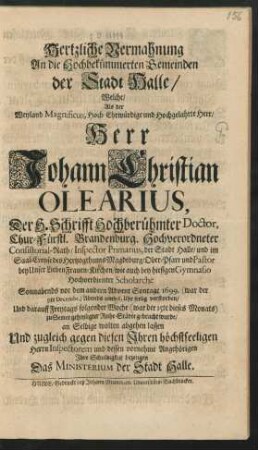 156
Hertzliche Vermahnung
An die Hochbekümmerten Gemeinden
der Stadt Halle/
Welche/
Als der
Weyland Magnificus, Hoch-Ehrwürdige und Hochgelahrte Herr/
Herr
Johann Christian
OLEARIUS,
Der H. Schrifft Hochberühmter Doctor,
Chur-Fürstl. Brandenburg. Hochverordneter
Consistorial-Rath, Inspector Primarius, der Stadt Halle/ und im
Saal-Creyse des Hertzogthums Magdeburg/ Ober-Pfarr und Pastor
bey Unser Lieben Frauen-Kirchen/ wie auch bey hiesigen Gymnasio
Hochverdienter Scholarch/
Sonnabends vor dem andern Advent Sontage 1699. war der
Decembr. Abends Uhr selig verstorben/
Und darauff Freytags folgender Woche (war der dieses Monats)
zu Seiner Ruhe-Städte gebracht wurde/
an Selbige wollen abgehen laßen
Und zugleich gegen diesen Ihren höchstseeligen
Herrn Inspectorem und dessen vornehme Angehörigen
Ihre Schuldigkeit bezeigen
Das MINISTERIUM der Stadt Halle.
HALLE, Gedruckt bey Johann